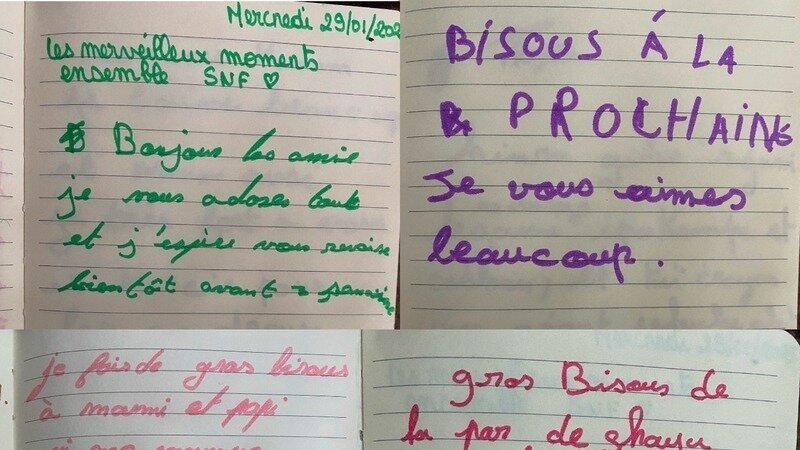 Mercredi 29/01/202
Les merveilleux moments
ensemble SNF ♡
Bonjour les amie
je vous adores toute
et j'espère vous revoire
bientôt avant 2 semaine
BISOUS À LA
PROCHAINE
Je vous aimes
beaucoup.
je fais de gras bisous
à mamni et papi
gros Bisous de
la par de